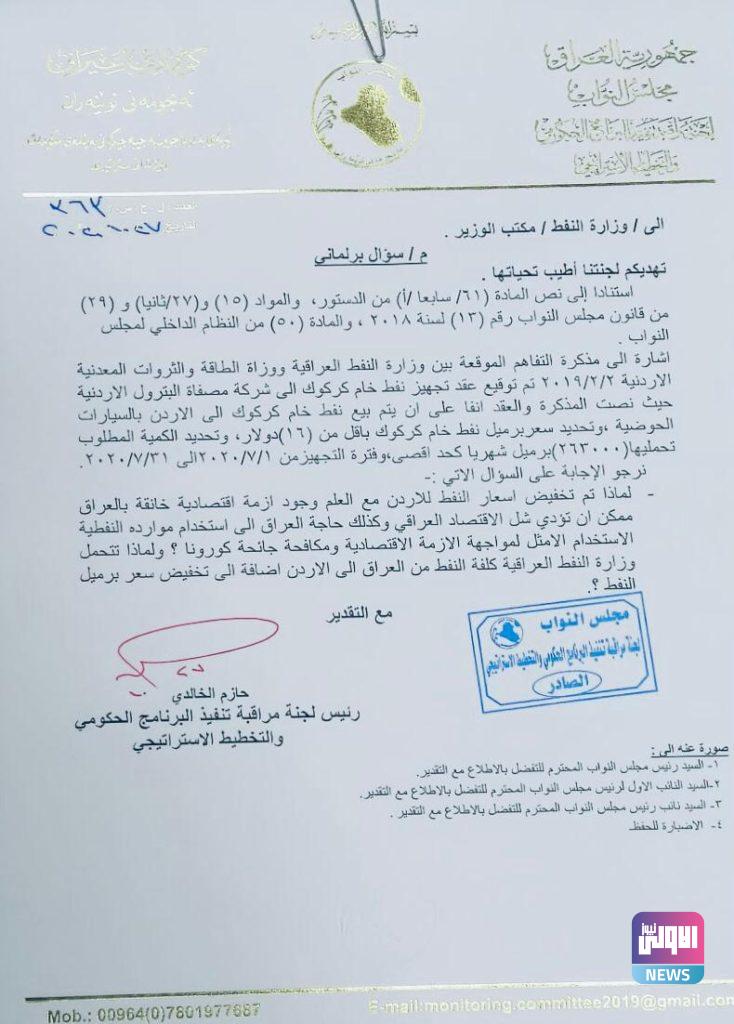 جمهورية العراق
مجلس النواب
لجنة مراقبة تنفيذ البرنامج الحكومي
والتخطيط الاستراتيجي
٣٦٣
الى / وزارة النفط / مكتب الوزير .
م / سؤال برلماني
تهديكم لجنتنا أطيب تحياتها .
استنادا إلى نص المادة (٦١/ سابعا /أ) من الدستور، والمواد (١٥) و(٢٧/ثانيا) و (٢٩)
من قانون مجلس النواب رقم (١٣) لسنة ٢٠١٨ ، والمادة (٥٠) من النظام الداخلي لمجلس
النواب .
اشارة الى مذكرة التفاهم الموقعة بين وزارة النفط العراقية ووزاة الطاقة والثروات المعدنية
الاردنية ٢٠١٩/٢/٢ تم توقيع عقد تجهيز نفط خام كركوك الى شركة مصفاة البترول الاردنية
حيث نصت المذكرة والعقد انفا على ان يتم بيع نفط خام كركوك الى الاردن بالسيارات
الحوضية ،وتحديد سعربرميل نفط خام كركوك باقل من (١٦)دولار، وتحديد الكمية المطلوب
تحمليها(٢٦٣٠٠٠)برميل شهريا كحد اقصى،وفترة التجهيزمن ٢٠٢٠/٧/١الى ٢٠٢٠/٧/٣١.
نرجو الإجابة على السؤال الاتي :-
- لماذا تم تخفيض اسعار النفط للاردن مع العلم وجود ازمة اقتصادية خانقة بالعراق
ممكن ان تؤدي شل الاقتصاد العراقي وكذلك حاجة العراق الى استخدام موارده النفطية
الاستخدام الامثل لمواجهة الازمة الاقتصادية ومكافحة جائحة كورونا ؟ ولماذا تتحمل
وزارة النفط العراقية كلفة النفط من العراق الى الاردن اضافة الى تخفيض سعر برميل
النفط ؟.
مع التقدير
مجلس النواب
لجنة مراقبة تنفيذ البرنامج الحكومي والتخطيط الاستراتيجي
الصادر
حازم الخالدي
رئيس لجنة مراقبة تنفيذ البرنامج الحكومي
والتخطيط الاستراتيجي
صورة عنه الى :
١- السيد رئيس مجلس النواب المحترم للتفضل بالاطلاع مع التقدير.
٢-السيد النائب الاول لرئيس مجلس النواب المحترم للتفضل بالاطلاع مع التقدير.
٣- السيد نائب رئيس مجلس النواب المحترم للتفضل بالاطلاع مع التقدير .
٤- الاضبارة للحفظ
الاولى نيوز
NEWS
Mob.: 00964(0)7801977887
E-mail:monitoring.committee2019@gmail.com